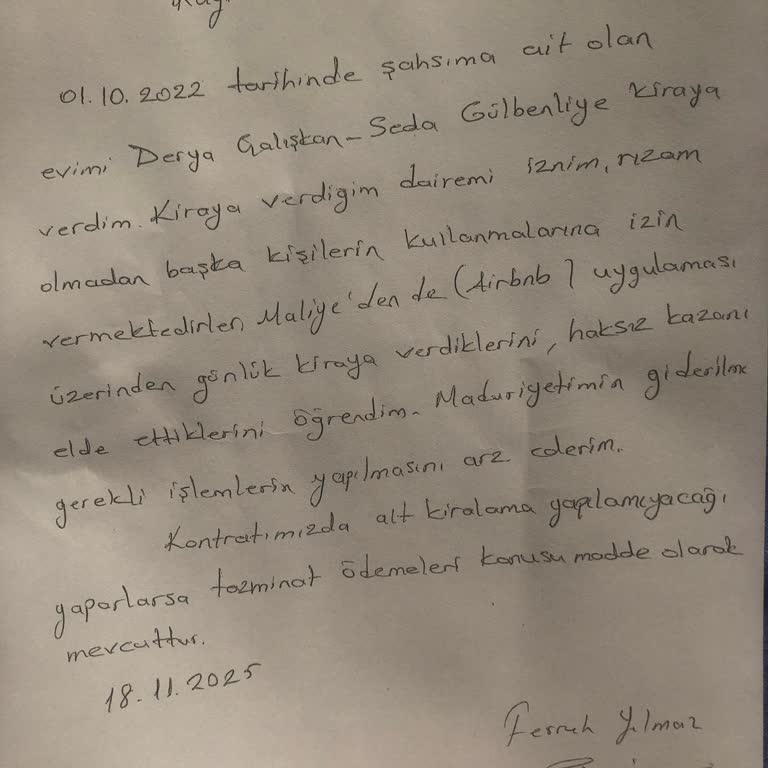 01.10.2022 tarihinde şahsıma ait olan
evimi Derya Çalışkan-Seda Gülbenliye kiraya
verdim. Kiraya verdigim dairemi iznim, rızam
olmadan başka kişilerin kullanmalarına izin
vermektedirler, Maliye'den de (Airbnb) uygulaması
üzerinden günlük kiraya verdiklerini, haksız kazanı
elde ettiklerini öğrendim. Maduriyetimin giderilme
gerekli işlemlerin yapılmasını arz ederim.
Kontratımızda alt kiralama yapılamıyacağı
yaparlarsa tazminat ödemeleri konusu madde olarak
mevcuttur.
18.11.2025
Ferruh Yılmaz